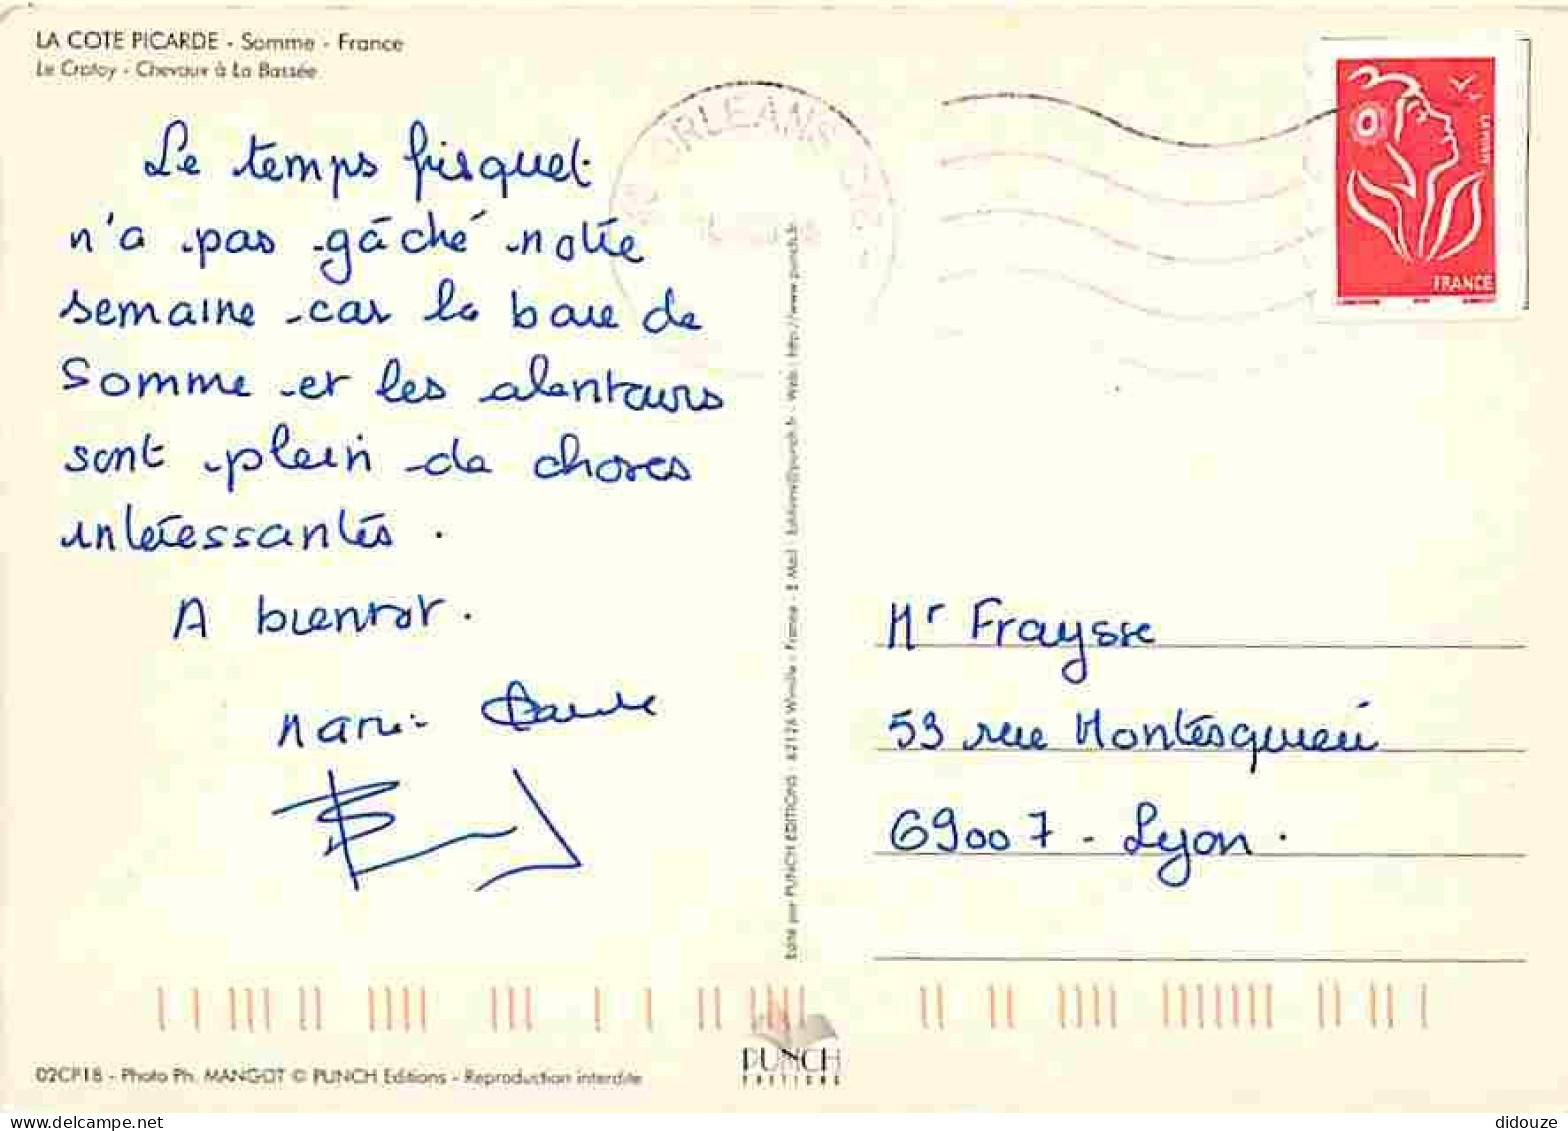 LA COTE PICARDE - Somme - France
Le Crotoy - Chevaux à La Bassée
ORLEANS
LETTRE
FRANCE
Le temps frisquet
n'a pas gâché notre
semaine car la baie de
Somme et les alentours
sont plein de choses
intéressantes.
A bientot.
Marie
Edité par PUNCH EDITIONS - 62126 Wimille - France - E Mail : Editions@punch.fr - Web : http://www.punch.fr
Mr Fraysse
53 rue Montesquieu
69007 - Lyon.
PUNCH
EDITIONS
02CP18 - Photo Ph. MANGOT © PUNCH Editions - Reproduction interdite
www.delcampe.net
didouze